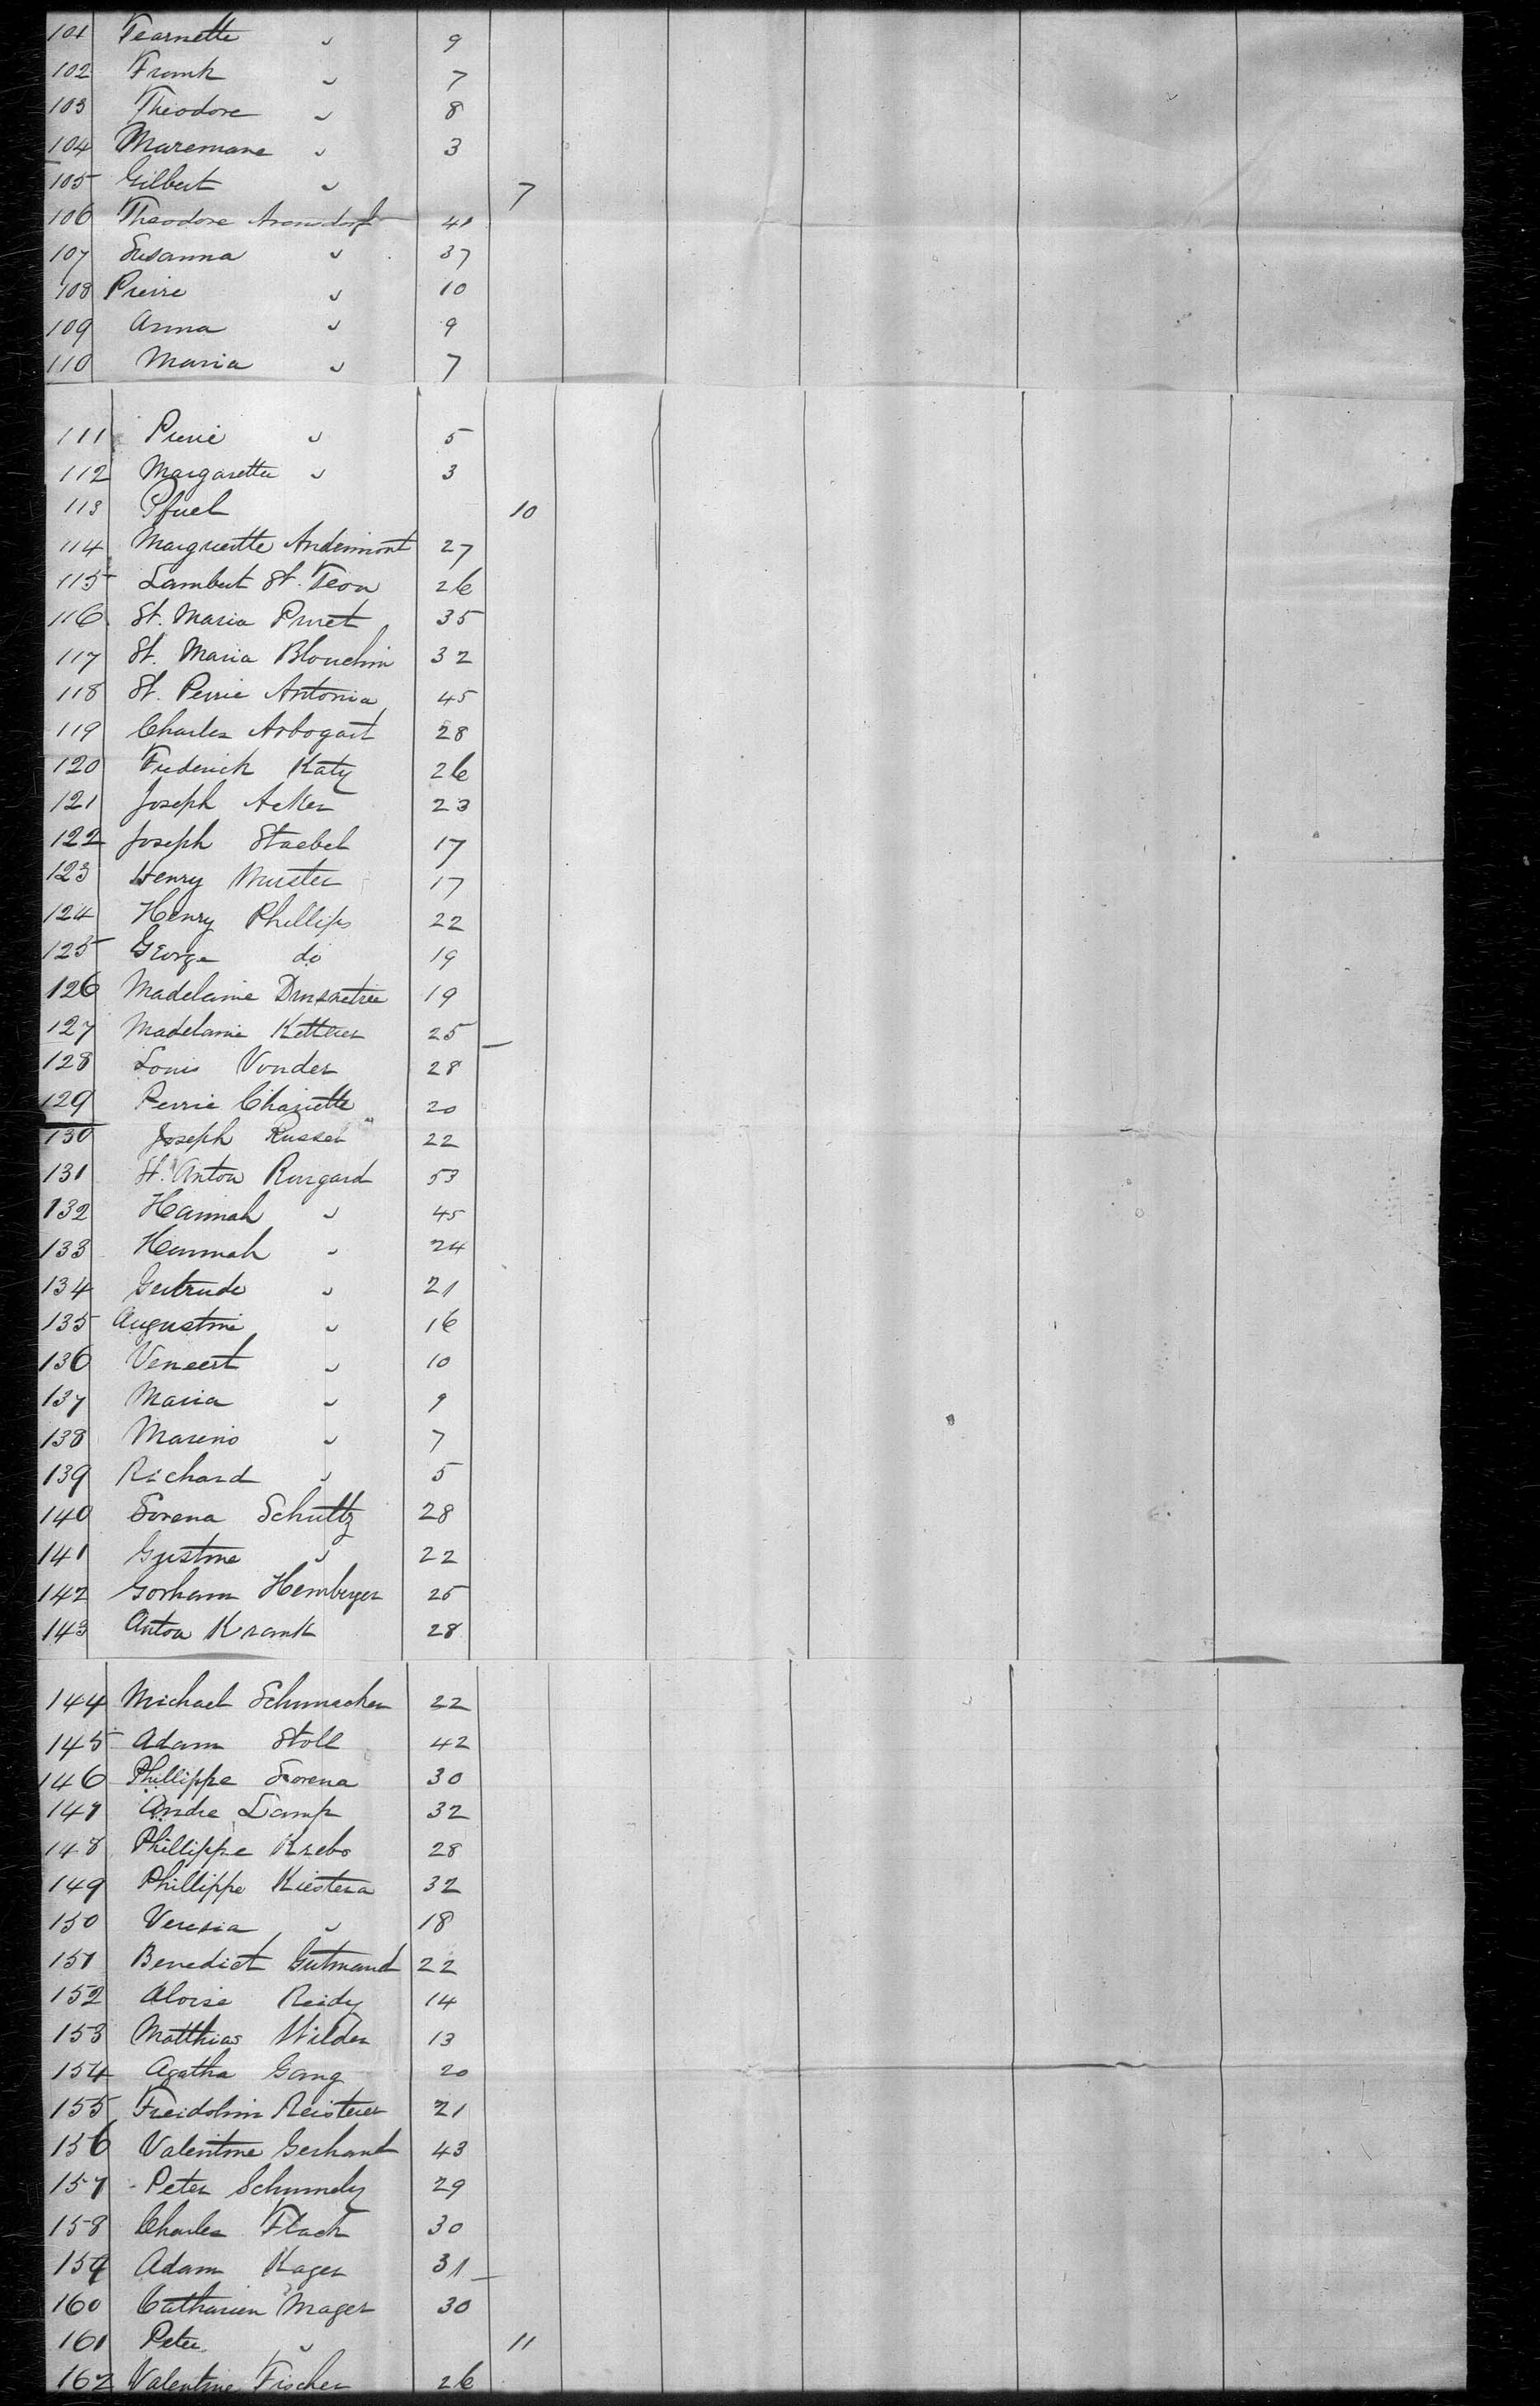 101 Fearnette " 9
102 Frank " 7
103 Theodore " 8
104 Maremane " 3
105 Gilbert " 7
106 Theodore Arensdorf 41
107 Susanna " 37
108 Pierre " 10
109 Anna " 9
110 Maria " 7
111 Pierre " 5
112 Margaretta " 3
113 Pfuel 10
114 Marguerette Andermont 27
115 Lambert St. Teon 26
116 St. Maria Pruet 35
117 St. Maria Blouchin 32
118 St. Perrie Antonia 45
119 Charles Arbogart 28
120 Frederick Katz 26
121 Joseph Acker 23
122 Joseph Staebel 17
123 Henry Murster 17
124 Henry Phillips 22
125 George do 19
126 Madelanie 19
127 Madelanie Ketterer 25
128 Louis Vonder 28
129 Perrie Chariette 20
130 Joseph Russel 22
131 St. Anton Rungard 53
132 Hannah " 45
133 Hannah " 24
134 Gertrude " 21
135 Augustine " 16
136 Veneert " 10
137 Maria " 9
138 Mareno " 7
139 Richard " 5
140 Sorena Schultz 28
141 Gustine " 22
142 Gorham Hemberger 25
143 Anton Kramk 28
144 Michael Schumacher 22
145 Adam Stoll 42
146 Phillippe Sorena 30
147 Andre Lamp 32
148 Phillippe Krebs 28
149 Phillippe Kiestera 32
150 Veresia " 18
151 Benedict Gutmand 22
152 Aloise Reidy 14
153 Matthias Wilder 13
154 Agatha Gang 20
155 Freidolin Reisterer 21
156 Valentine Gerhant 43
157 Peter Schumely 29
158 Charles Flach 30
159 Adam Kager 31
160 Catharien Mager 30
161 Peter " 11
162 Valentine Fischer 26